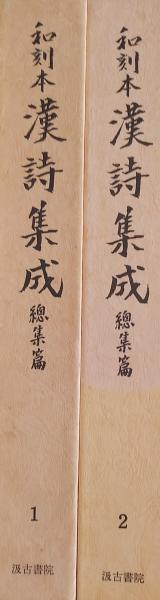 和刻本漢詩集成總集篇
1
汲古書院
和刻本漢詩集成總集篇
2
汲古書院